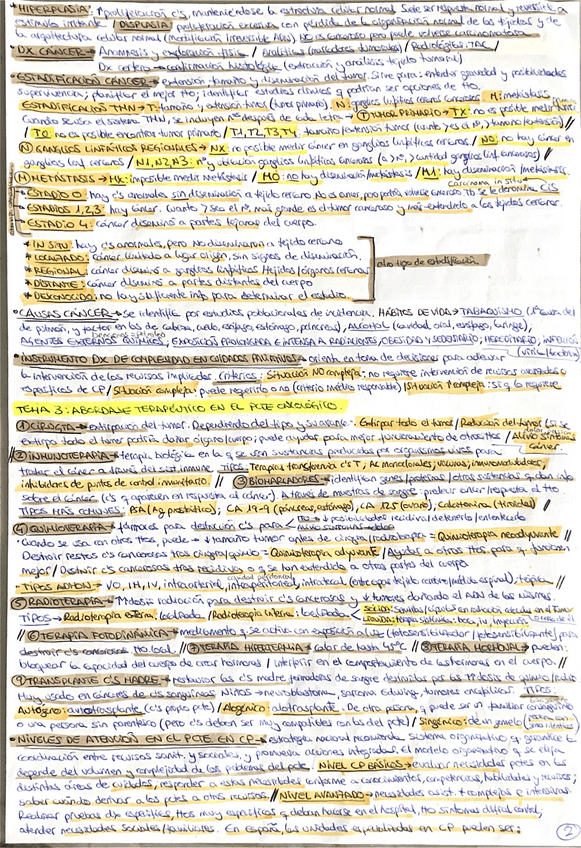 • HIPERPLASIA: ↑ proliferación c/s, manteniéndose la estructura celular normal. Suele ser respuesta normal y reversible a
estímulo irritante / DISPLASIA: proliferación excesiva con pérdida de la organización normal de los tejidos y de
la arquitectura celular normal. NO es canceroso pero puede volverse carcinomatosa
• DX CÁNCER → Anamnesis y exploración física / Analíticas (marcadores tumorales) / Radiológicas: TAC /
Dx certero → confirmación histológica (extracción y análisis tejido tumoral)
• ESTADIFICACIÓN CÁNCER → extensión, tamaño y diseminación del tumor. Sirve para: entender gravedad y posibilidades
supervivencia, planificar el mejor tto, identificar estudios clínicos q podrían ser opciones de tto.
ESTADIFICACIÓN TNM → T: tamaño y extensión tumor (tumor primario) N: ganglios linfáticos cercanos cancerosos. M: metástasis
Cuando se usa el sistema TNM, se incluyen nº después de cada letra → ① TUMOR PRIMARIO → TX: no es posible medir tumor
// T0: no es posible encontrar tumor primario / T1, T2, T3, T4: tamaño/extensión tumor (cuanto > es el nº, > tamaño/extensión) //
N) GANGLIOS LINFÁTICOS REGIONALES → NX: no es posible medir cáncer en ganglios linfáticos cercanos / N0: no hay cáncer en
ganglios linf cercanos / N1, N2, N3: nº y ubicación ganglios linfáticos cancerosos (a > nº, > cantidad ganglios linf cancerosos) //
M) METÁSTASIS → MX: imposible medir metástasis / M0: no hay diseminación/metástasis / M1: hay diseminación/metástasis.
carcinoma in situ
• ESTADIO 0: hay c/s anormales sin diseminación a tejido cercano. No es cáncer, pero podría volverse canceroso. Tb se le denomina CIS
• ESTADIOS 1, 2, 3: hay cáncer. Cuanto > sea el nº, más grande es el tumor canceroso y más extendido a los tejidos cercanos
• ESTADIO 4: cáncer diseminó a partes lejanas del cuerpo.
* IN SITU: hay c/s anormales, pero no diseminaron a tejido cercano
* LOCALIZADO: cáncer limitado a lugar origen, sin signos de diseminación,
* REGIONAL: cáncer diseminó a ganglios linfáticos // tejidos/órganos cercanos
* DISTANTE: cáncer diseminó a partes distantes del cuerpo
* DESCONOCIDO: no hay suficiente info para determinar el estadio.
otro tipo de estadificación.
• CAUSAS CÁNCER → se identifica por estudios poblacionales de incidencia. HÁBITOS DE VIDA → TABAQUISMO (1ª causa del
de pulmón, y factor en los de cabeza, cuello, esófago, estómago, páncreas), ALCOHOL (cavidad oral, esófago, laringe),
AGENTES EXTERNOS QUÍMICOS, EXPOSICIÓN PROLONGADA E INTENSA A RADIACIONES, OBESIDAD Y SEDENTARISMO, HEREDITARIO, INFECCIÓN
• INSTRUMENTO DX DE COMPLEJIDAD EN CUIDADOS PALIATIVOS → orienta en toma de decisiones para adecuar
la intervención de los recursos implicados. Criterios: Situación NO compleja: no requiere intervención de recursos avanzados o
específicos de CP / Situación compleja: puede requerirlo o no (criterio médico responsable) / Situación ↑ compleja: sí q lo requiere
TEMA 3: ABORDAJE TERAPÉUTICO EN EL PCTE ONCOLÓGICO.
① CIRUGÍA → extirpación del tumor. Dependiendo del tipo y su avance: Extirpar todo el tumor / Reducción del tumor (si se
extirpa todo el tumor podría dañar órgano/cuerpo; puede ayudar para mejor funcionamiento de otros ttos / Alivio síntomas
cáncer.
// ② INMUNOTERAPIA → terapia biológica en la q se usan sustancias producidas por organismos vivos para
tratar el cáncer a través del sist. inmune. TIPOS: Terapia transferencia c/s T, Ac monoclonales, vacunas, inmunomoduladores,
inhibidores de puntos de control inmunitario // ③ BIOMARCADORES → identifican genes/proteínas/otras sustancias q dan info
sobre el cáncer (c/s q aparecen en respuesta al cáncer). A través de muestras de sangre: predecir cómo respuesta al tto
TIPOS MÁS COMUNES: PSA (Ag prostático), CA 19-9 (páncreas, estómago), CA 125 (ovario), Calcitonina (tiroides) //
④ QUIMIOTERAPIA → fármacos para destrucción c/s para
Cuando se usa con otros ttos, puede → ↓ tamaño tumor antes de cirugía/radioterapia = Quimioterapia neoadyuvante //
Destruir restos c/s cancerosas tras cirugía/quimio = Quimioterapia adyuvante / Ayudar a otros ttos para q funcionen
mejor / Destruir c/s cancerosas tras recidiva o q se han extendido a otras partes del cuerpo.
cavidad peritoneal
• TIPOS ADMÓN → VO, IM, IV, intraarterial, intraperitoneal, intratecal (entre capas tejido cerebro/médula espinal), tópica //
⑤ RADIOTERAPIA → ↑ dosis radiación para destruir c/s cancerosas y ↓ tumores dañando el ADN de las mismas.
TIPOS → Radioterapia externa: localizada / Radioterapia interna: localizada
// ⑥ TERAPIA FOTODINÁMICA → medicamento q se activa con exposición a luz (fotosensibilizador / fotosensibilizante) para
destruir c/s cancerosas. No local. // ⑦ TERAPIA HIPERTERMIA → calor de hasta 45ºC // ⑧ TERAPIA HORMONAL → pueden:
bloquear la capacidad del cuerpo de crear hormonas / interferir en el comportamiento de las hormonas en el cuerpo. //
⑨ TRANSPLANTE C/S MADRE → restaurar las c/s madre formadoras de sangre destruidas por las ↑↑ dosis de quimio/radio
Muy usado en cánceres de c/s sanguíneas. Niños → neuroblastoma, sarcoma Ewing, tumores encefálicos. TIPOS →
Autógeno: autotrasplante (c/s propio pcte) / Alogénico: alotrasplante. De otra persona, q puede ser un familiar consanguíneo
o una persona sin parentesco (pero c/s deben ser muy compatibles con las del pcte) / Singénico: de un gemelo
• NIVELES DE ATENCIÓN EN EL PCTE EN CP → estrategia nacional recomienda sistema organizativo q garantice la
coordinación entre recursos sanit. y sociales, y promueva acciones integradas. El modelo organizativo q se elija
depende del volumen y complejidad de los problemas del pcte. NIVEL CP BÁSICOS → evaluar necesidades pctes en las
distintas áreas de cuidados, responder a estas necesidades conforme a conocimientos, competencias, habilidades y recursos;
saber cuándo derivar a los pctes a otros recursos. // NIVEL AVANZADO → necesidades asist. ↑ complejas e intensivas.
Realizar pruebas dx específicas, ttos muy específicos q deban hacerse en el hospital, tto síntomas difícil control,
atender necesidades sociales/familiares. En España, las unidades especializadas en CP pueden ser:
②